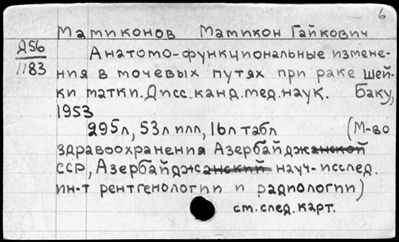 6
Матиконов Матикон Гайкович
Д56
1183
Анатомо-функциональные измене-
ния в мочевых путях при раке шей-
ки матки. Дисс. канд. мед. наук. Баку,
1953
295л, 53л илл, 16л табл (М-во
здравоохранения Азербайджанской
ССР, Азербайджанский науч-исслед.
ин-т рентгенологии и радиологии)
см. след. карт.